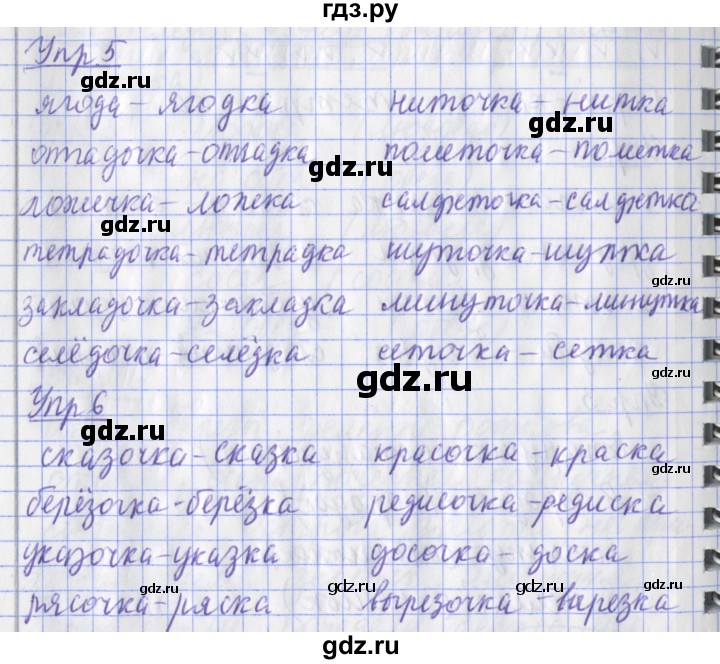 гдз.ру
Упр 5
gdz.ru
ягода - ягодка ниточка - нитка
gdz.ru
отгадочка - отгадка пометочка - пометка
gdz.ru
ложечка - ложка салфеточка - салфетка
gdz.ru
тетрадочка - тетрадка шуточка - шутка
gdz.ru
закладочка - закладка минуточка - минутка
селёдочка - селёдка сеточка - сетка
gdz.ru
gdz.ru
Упр 6
gdz.ru
сказочка - сказка красочка - краска
gdz.ru
берёзочка - берёзка редисочка - редиска
gdz.ru
указочка - указка досочка - доска
gdz.ru gdz.ru gdz.ru
рясочка - ряска вырезочка - вырезка
gdz.ru